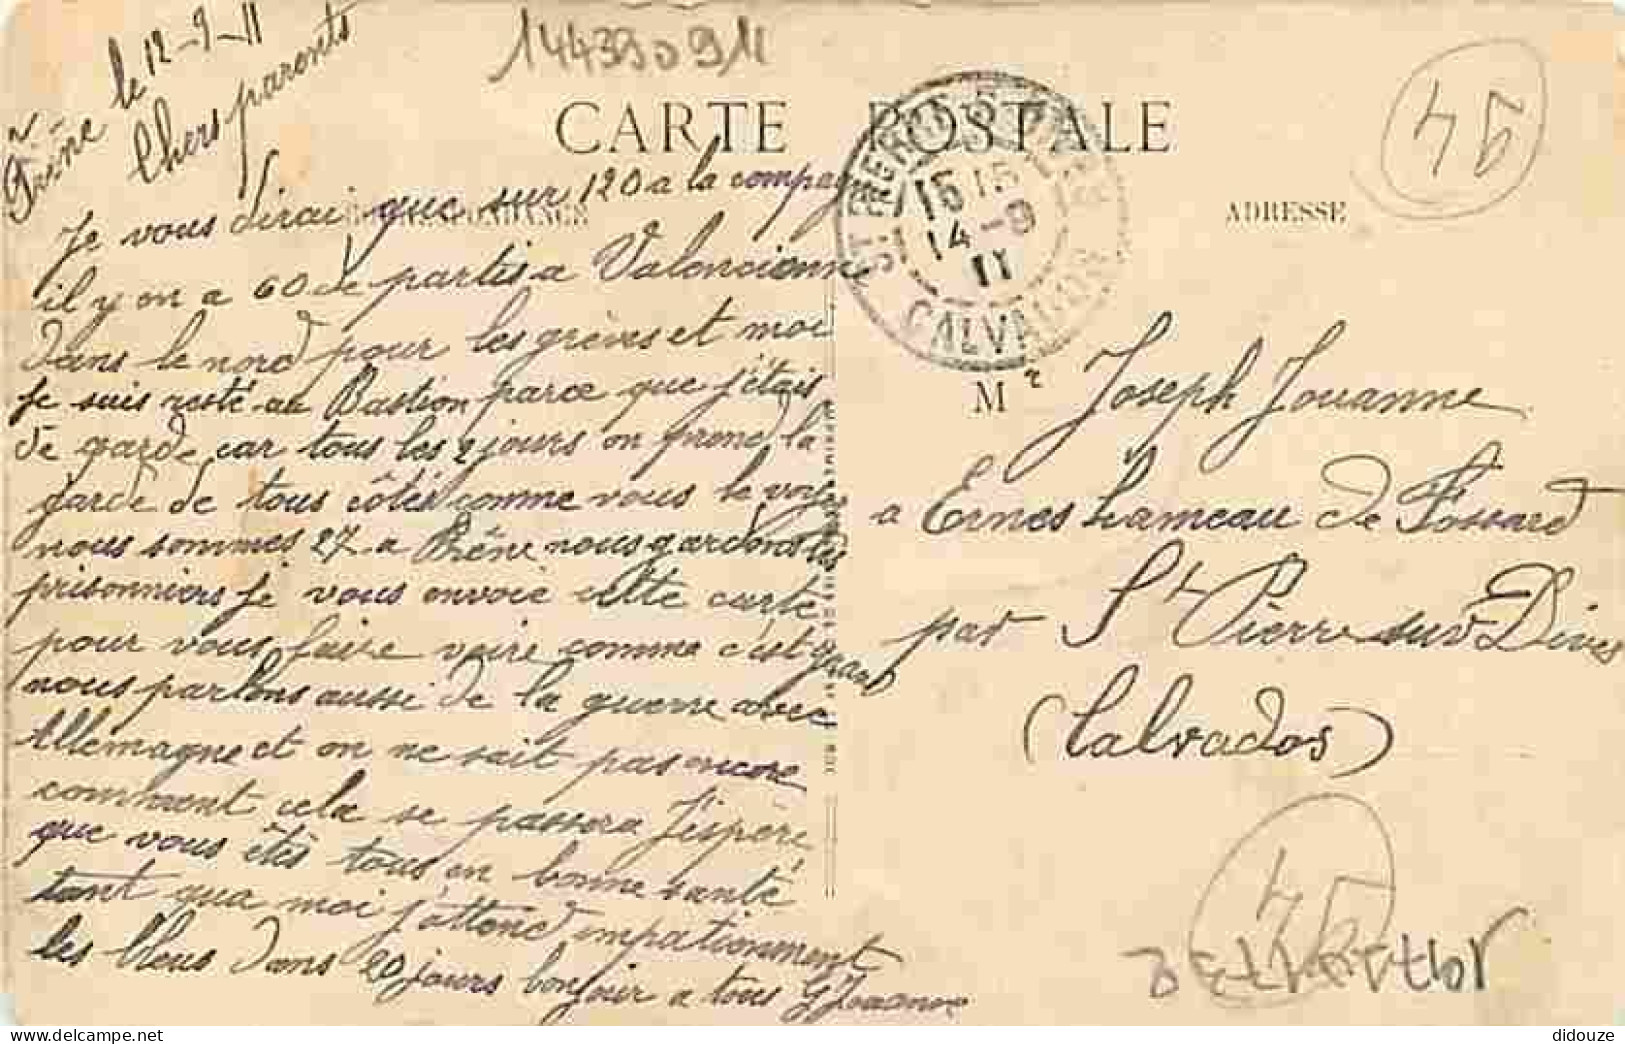 14439091
CARTE POSTALE
CORRESPONDANCE
ADRESSE
45
ST PIERRE-S-DIVES
15 15
14 - 9
11
CALVADOS
Frêne le 12-9-11
Chers parents
Je vous dirai que sur 120 a la compagn
il y en a 60 de partis a Valencienne
dans le nord pour les grèves et moi
je suis resté au Bastion parce que j'étais
de garde car tous les 2 jours on prend la
garde de tous côtés comme vous le voyez
nous sommes 27 a Frêne nous gardons les
prisonniers je vous envoie cette carte
pour vous faire voire comme c'est grand
nous parlons aussi de la guerre avec
Allemagne et on ne sait pas encore
comment cela se passera J'espère
que vous êtês tous en bonne santé
tant qua moi j'attend impationment
les bleus dans 20 jours bonjour a tous G Jouanne
Mr Joseph Jouanne
a Ernes hameau de Fossard
par St Pierre sur Dives
(Calvados)
45
didouze